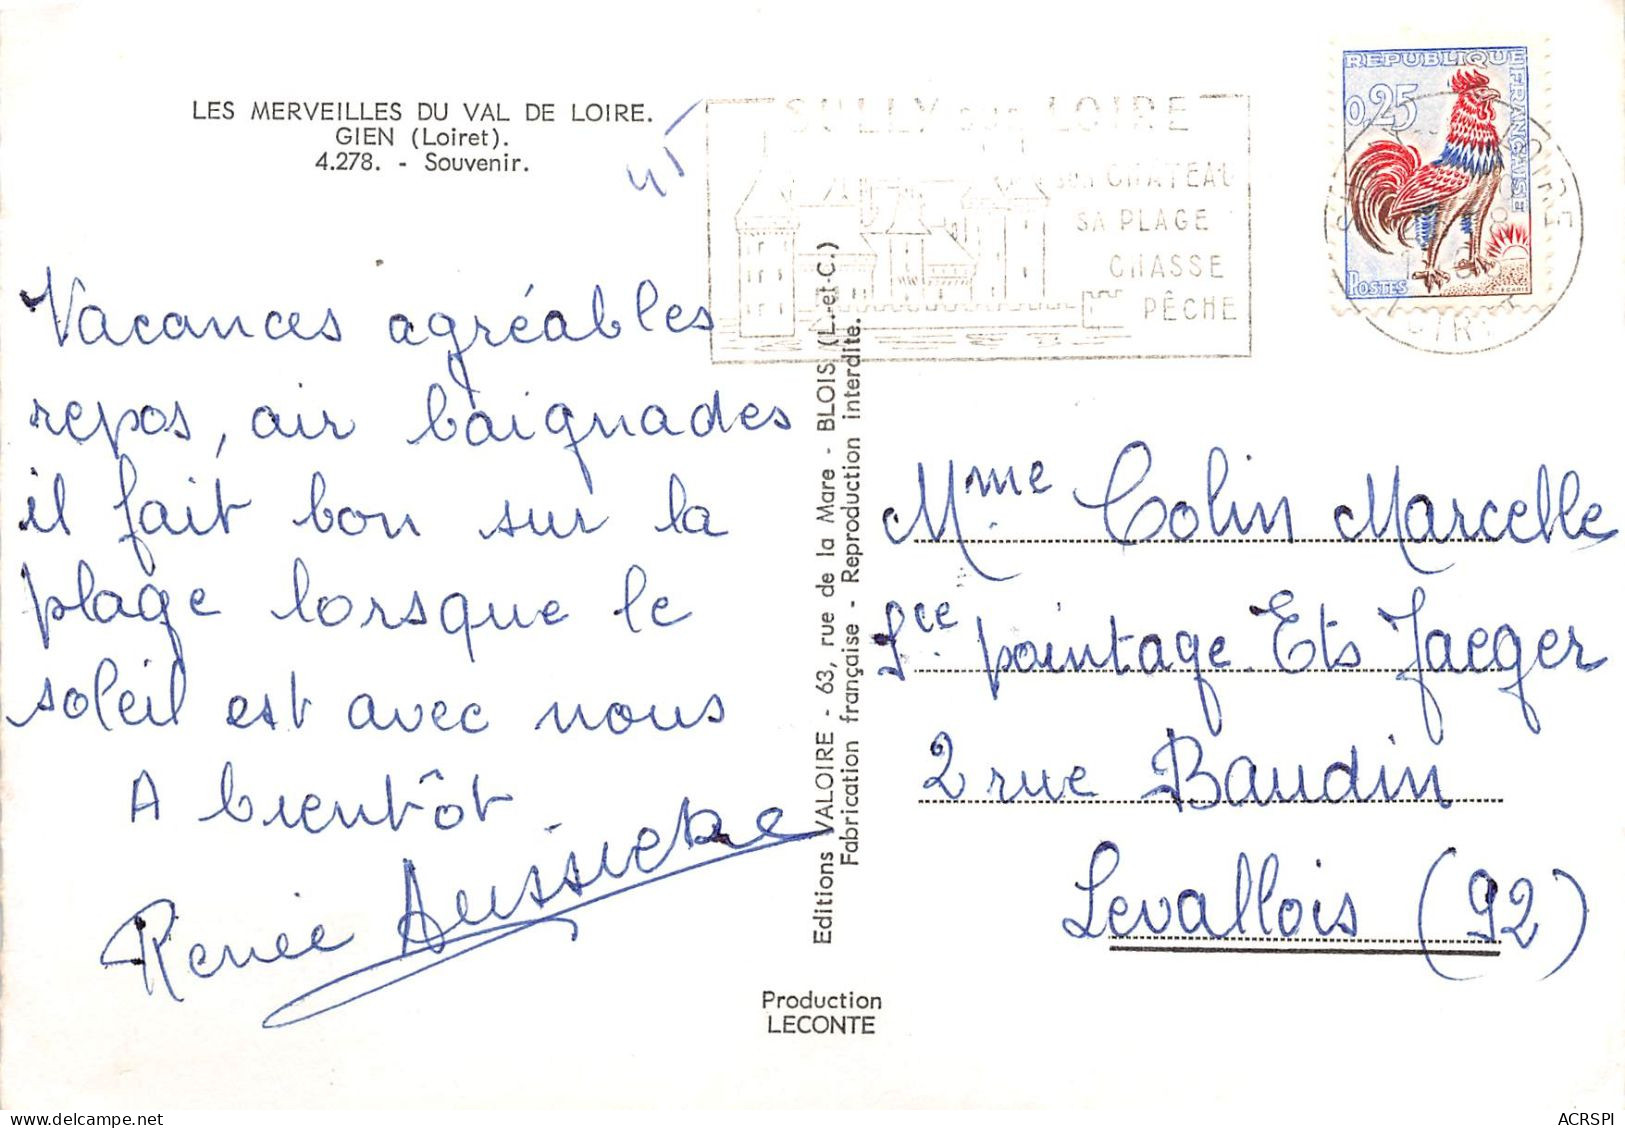 LES MERVEILLES DU VAL DE LOIRE.
GIEN (Loiret).
4.278. - Souvenir.
45
SULLY sur LOIRE
son CHÂTEAU
SA PLAGE
CHASSE
PÊCHE
REPUBLIQUE
FRANÇAISE
0,25
POSTES
Vacances agréables
repos, air baignades
il fait bon sur la
plage lorsque le
soleil est avec nous
A bientôt
Renée
Editions VALOIRE - 63, rue de la Mare - BLOIS (L.-et-C.)
Fabrication française - Reproduction interdite.
Mme Colin Marcelle
Sce pointage Ets Jaeger
2 rue Baudin
Levallois (92)
Production
LECONTE
delcampe.net
ACRSPI